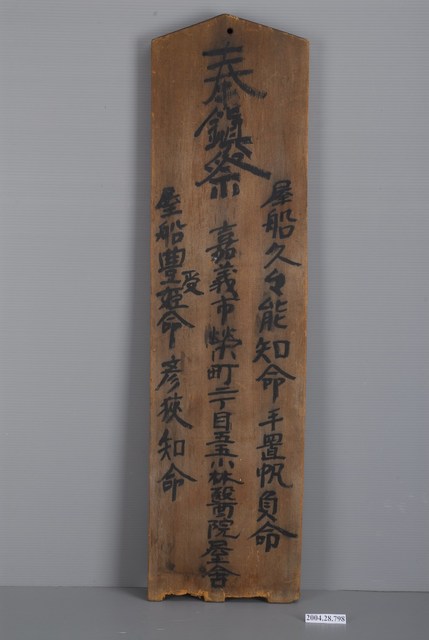 奉鎮祭
屋船久々能知命 手置帆負命
嘉義市榮町二丁目五五小林醫院屋舍
屋船豊受姫命 彥狹知命
2004.28.798